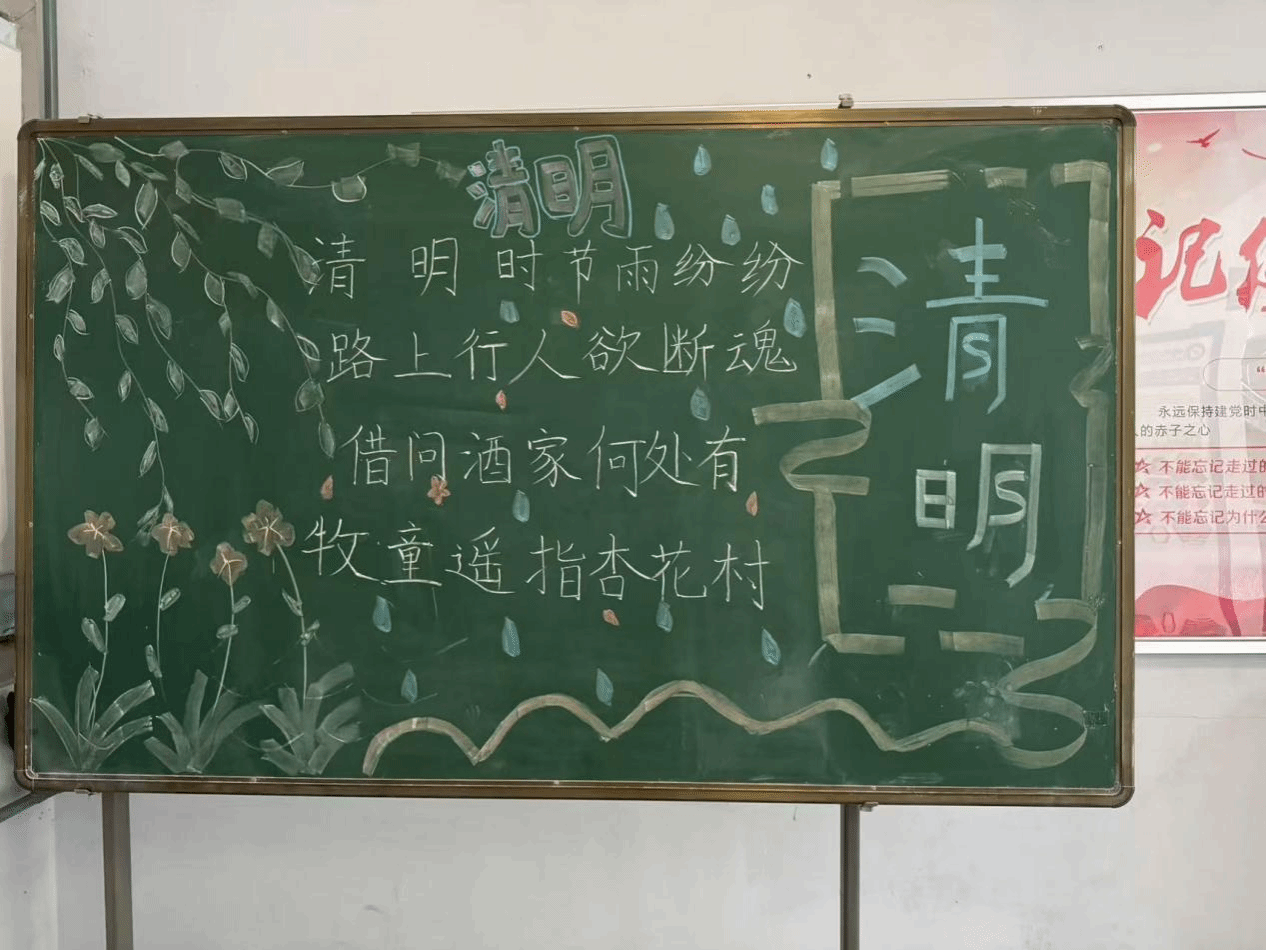 清明
清明时节雨纷纷
路上行人欲断魂
借问酒家何处有
牧童遥指杏花村
清
明
记
永远保持建党时中
人的赤子之心
不能忘记走过的
不能忘记走过的
不能忘记为什么